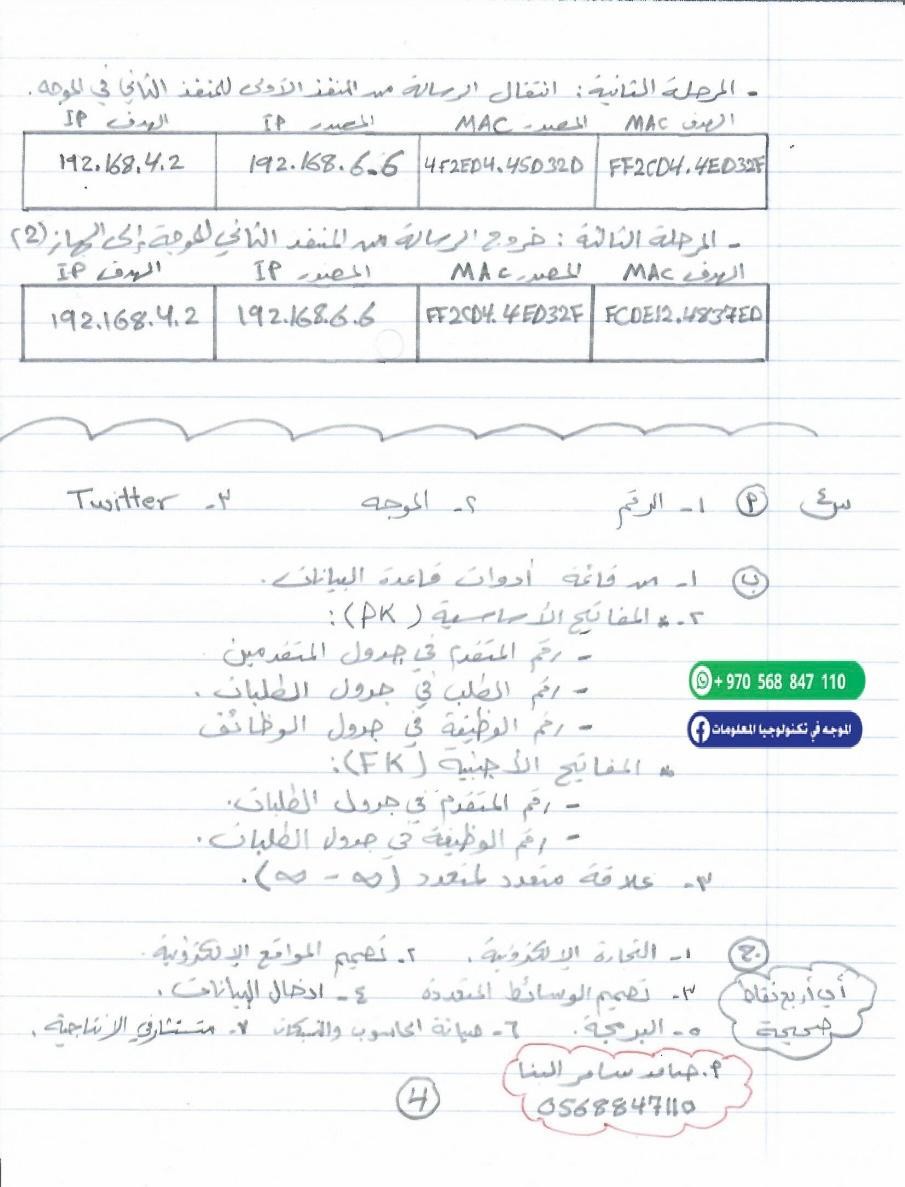 - المرحلة الثانية: انتقال الرسالة من المنفذ الأول للمنفذ الثاني في الموجه.
الهدف MAC المصدر MAC المصدر IP الهدف IP
FF2CD4.4ED32F 4F2ED4.45D32D 192.168.6.6 192.168.4.2
- المرحلة الثالثة: خروج الرسالة من المنفذ الثاني للموجه إلى الجهاز (2)
الهدف MAC المصدر MAC المصدر IP الهدف IP
FCDE12.4837ED FF2CD4.4ED32F 192.168.6.6 192.168.4.2
س٤ أ ١- الرقم ٢- الموجه ٣- Twitter
ب ١- من قائمة أدوات قاعدة البيانات.
٢- * المفاتيح الأساسية (PK):
- رقم المتقدم في جدول المتقدمين
- رقم الطلب في جدول الطلبات.
- رقم الوظيفة في جدول الوظائف
* المفاتيح الأجنبية (FK):
- رقم المتقدم في جدول الطلبات.
- رقم الوظيفة في جدول الطلبات.
٣- علاقة متعدد لمتعدد (∞ - ∞).
+ 970 568 847 110
الموجه في تكنولوجيا المعلومات
ج ١- التجارة الإلكترونية. ٢- تصميم المواقع الإلكترونية.
أي أربع نقاط صحيحة
٣- تصميم الوسائط المتعددة ٤- ادخال البيانات.
٥- البرمجة. ٦- صيانة الحاسوب والشبكات ٧- مستشار في الإنتاجية.
م. صامد سامر البنا
0568847110
4